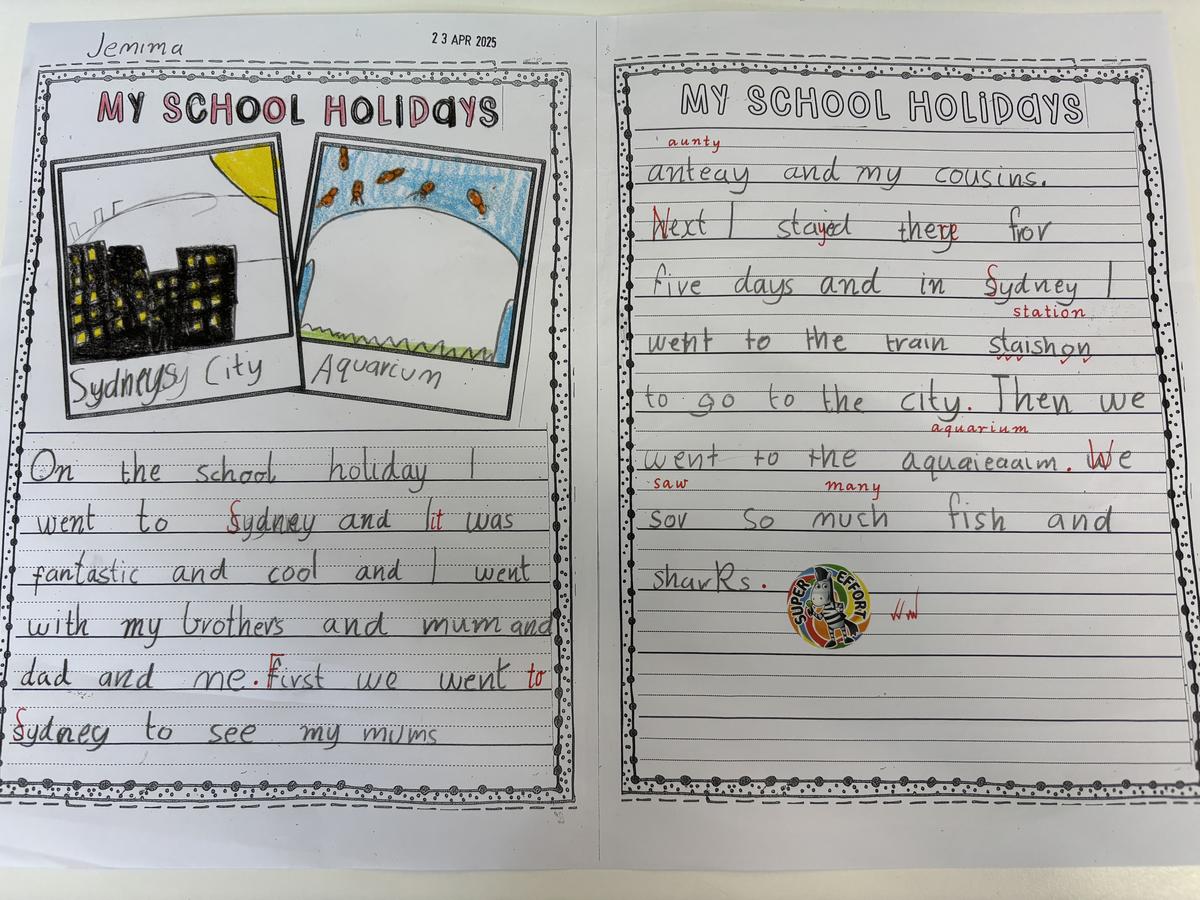 Jemima
23 APR 2025
MY SCHOOL HOLIDAYS
Sydneysy City
Aquarium
On the school holiday I
went to Sydney and it was
fantastic and cool and I went
with my brothers and mum and
dad and me. First we went to
Sydney to see my mums
MY SCHOOL HOLIDAYS
aunty
anteay and my cousins.
Next I stayed there fror
five days and in Sydney I
station
weht to the train staishon
to go to the city. Then we
aquarium
went to the aquaieaaim. We
saw many
sov so much fish and
sharks.
SUPER EFFORT